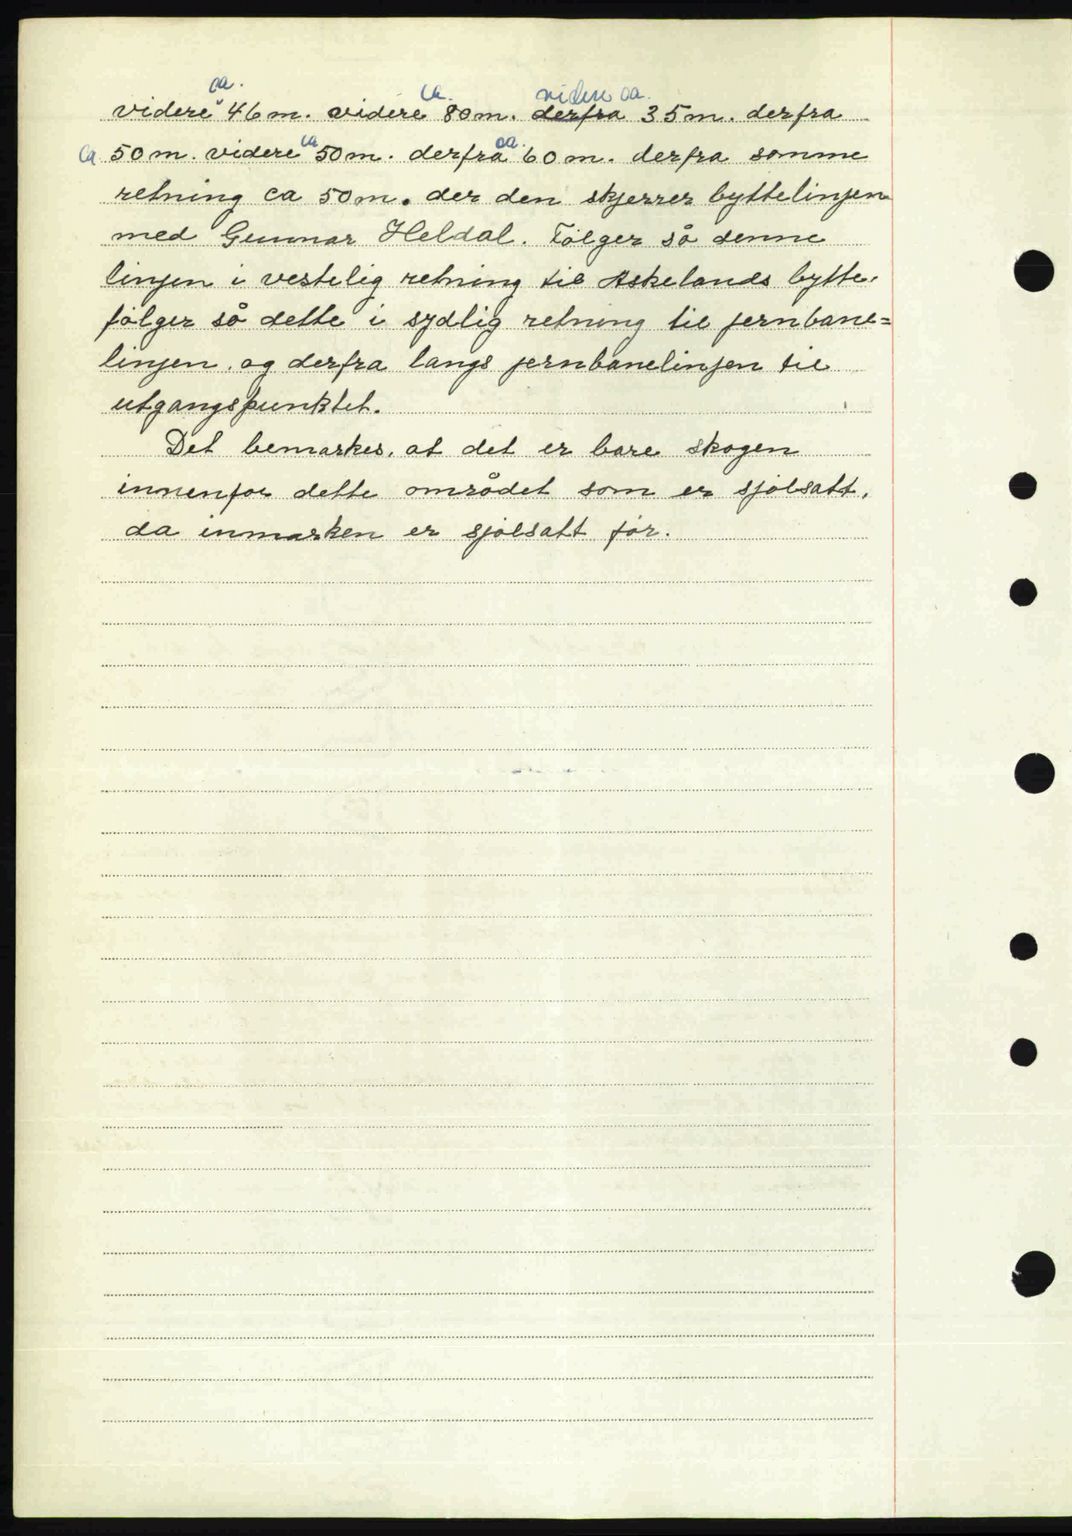 videre ca. 46 m. videre ca. 80 m. derfra videre ca. 35 m. derfra
ca 50 m. videre ca 50 m. derfra ca. 60 m. derfra somme
retning ca 50 m. der den skjerrer byttelinjen
med Gunnar Heldal. Følger så denne
linjen i vestelig retning til Askelands bytte.
følger så dette i sydlig retning til jernbane=
linjen. og derfra langs jernbanelinjen til
utgangspunktet.
Det bemarkes, at det er bare skogen
innenfor dette området som er sjølsatt,
da inmarken er sjølsatt før.